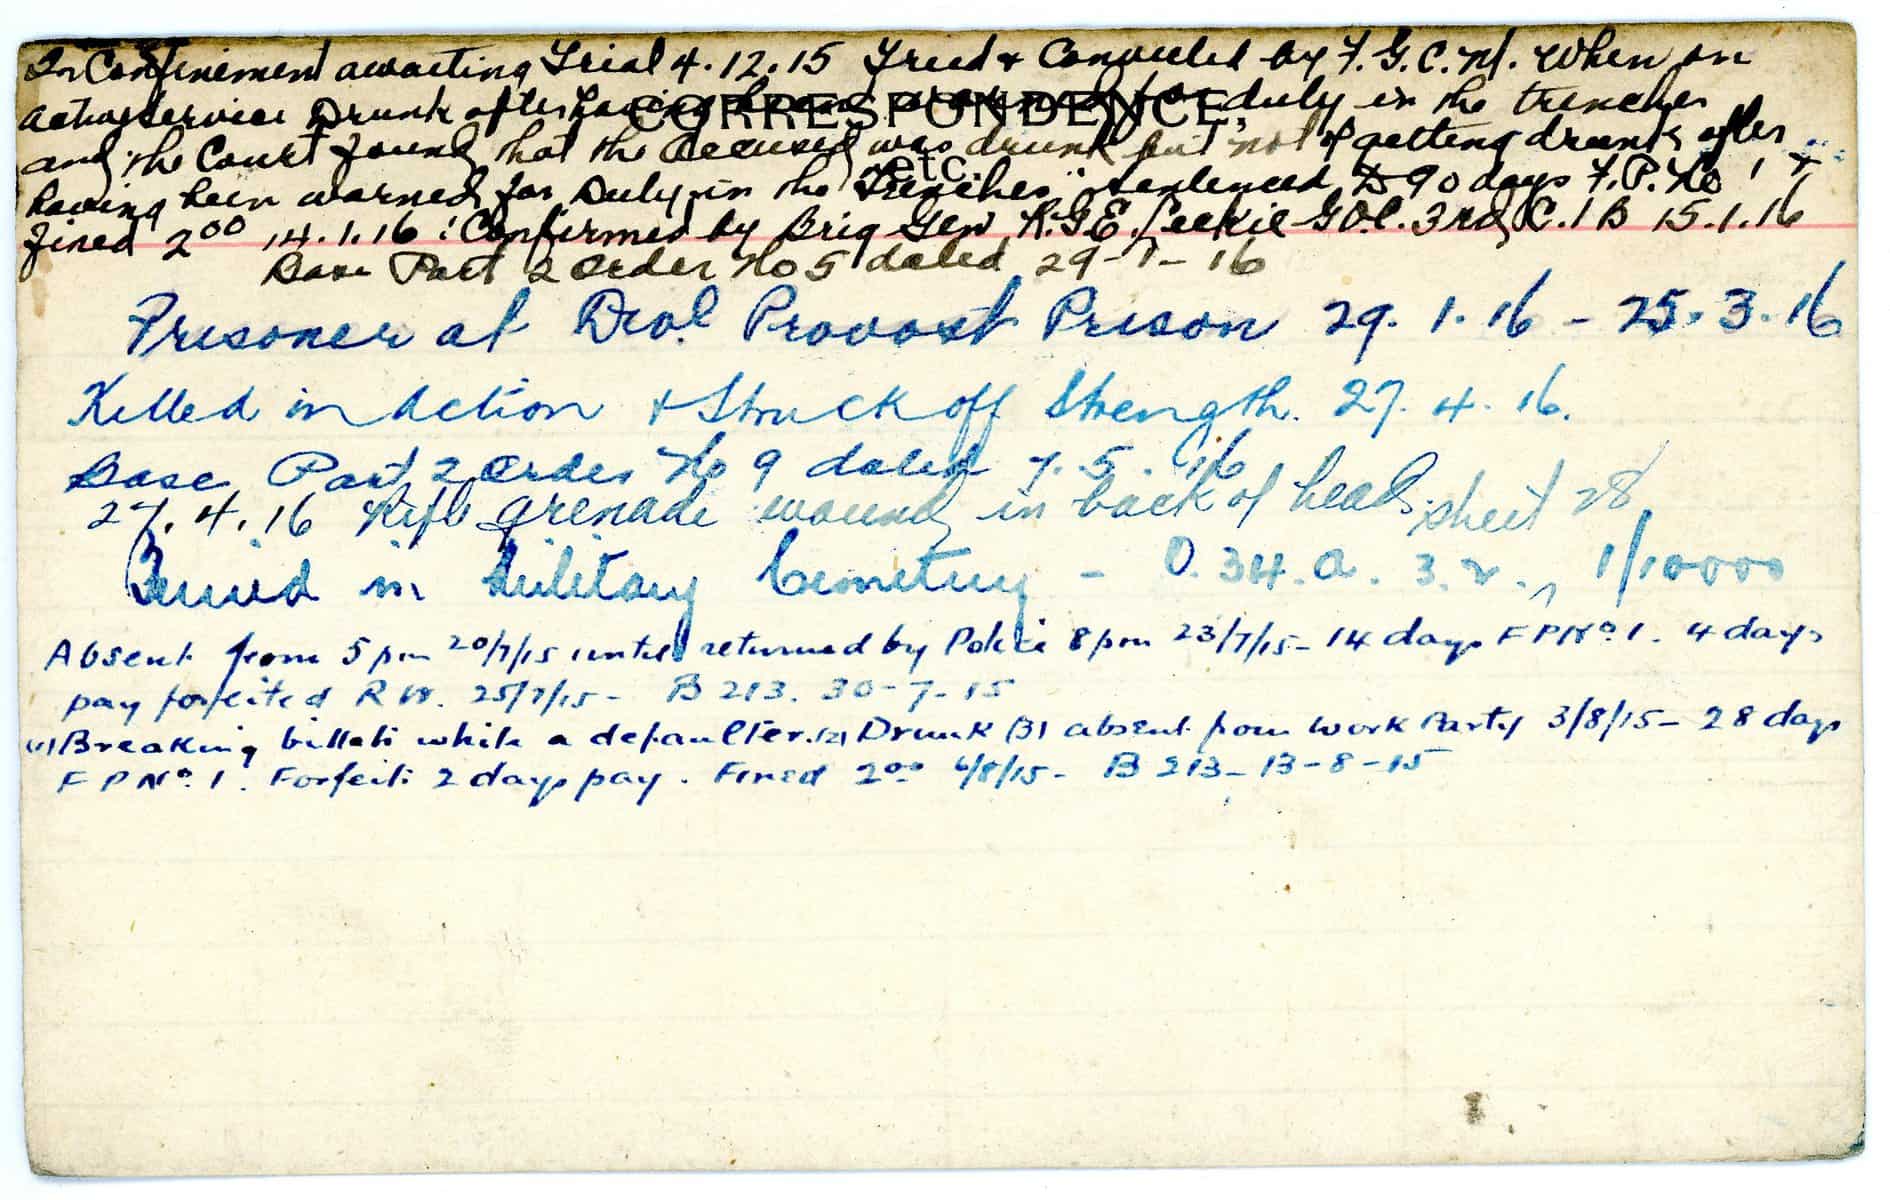 In Confinement awaiting Trial 4.12.15 Tried & Convicted by F.G.C.M. When on
CORRESPONDENCE,
active service Drunk after having been warned for duty in the trenches
etc.
and the Court found that the accused was drunk but not of getting drunk after
having been warned for Duty in the Trenches" sentenced to 90 days F.P. No 1 &
fined 2⁰⁰ 14.1.16 : Confirmed by Brig Gen R.G.E. Leckie G.O.C. 3rd C.I.B 15.1.16
Base Part 2 Order No 5 dated 29-1-16
Prisoner at Divl Provost Prison 29.1.16 - 25.3.16
Killed in Action & Struck off Strength. 27.4.16.
Base Part 2 Order No 9 dated 7.5.16
27.4.16 Rifle grenade wound in back of head. sheet 28
Buried in Military Cemetery - O.34.a.3.2., 1/10000
Absent from 5 pm 20/7/15 until returned by Police 8 pm 23/7/15 - 14 days F P No. 1. 4 days
pay forfeited R W. 25/7/15 - B 213. 30-7-15
(1) Breaking billets while a defaulter. (2) Drunk (3) absent from Work Party 3/8/15 - 28 days
F P No. 1. Forfeits 2 days pay. Fined 2⁰⁰ 6/8/15 - B 213 - 13-8-15